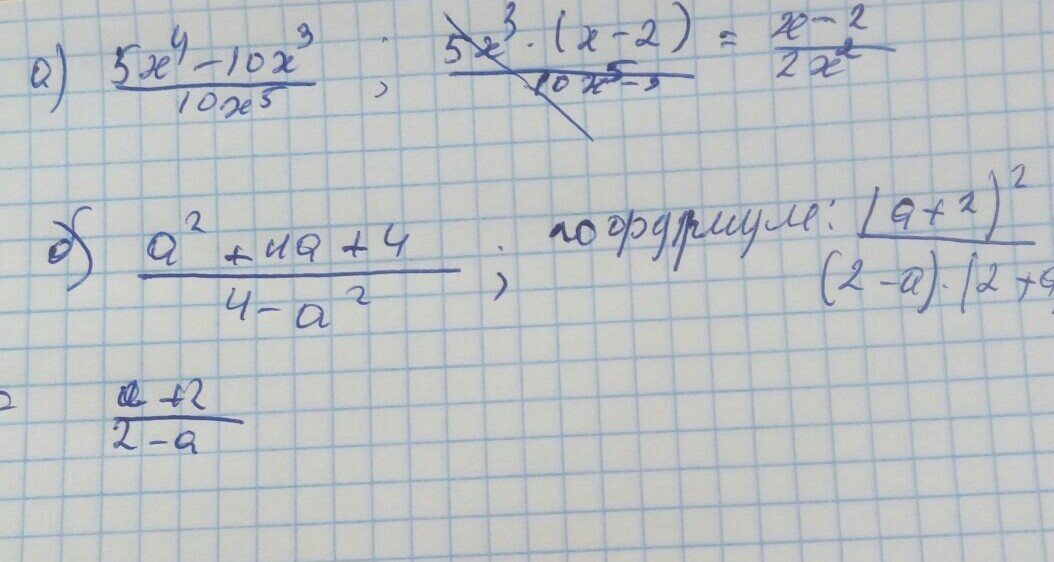 а) (5x⁴ - 10x³)/(10x⁵) ; (5x³ · (x - 2))/(10x⁵⁻³) = (x - 2)/(2x²)
б) (a² + 4a + 4)/(4 - a²) ; по формул: (a + 2)²/((2 - a) · (2 + a)
= (a + 2)/(2 - a)